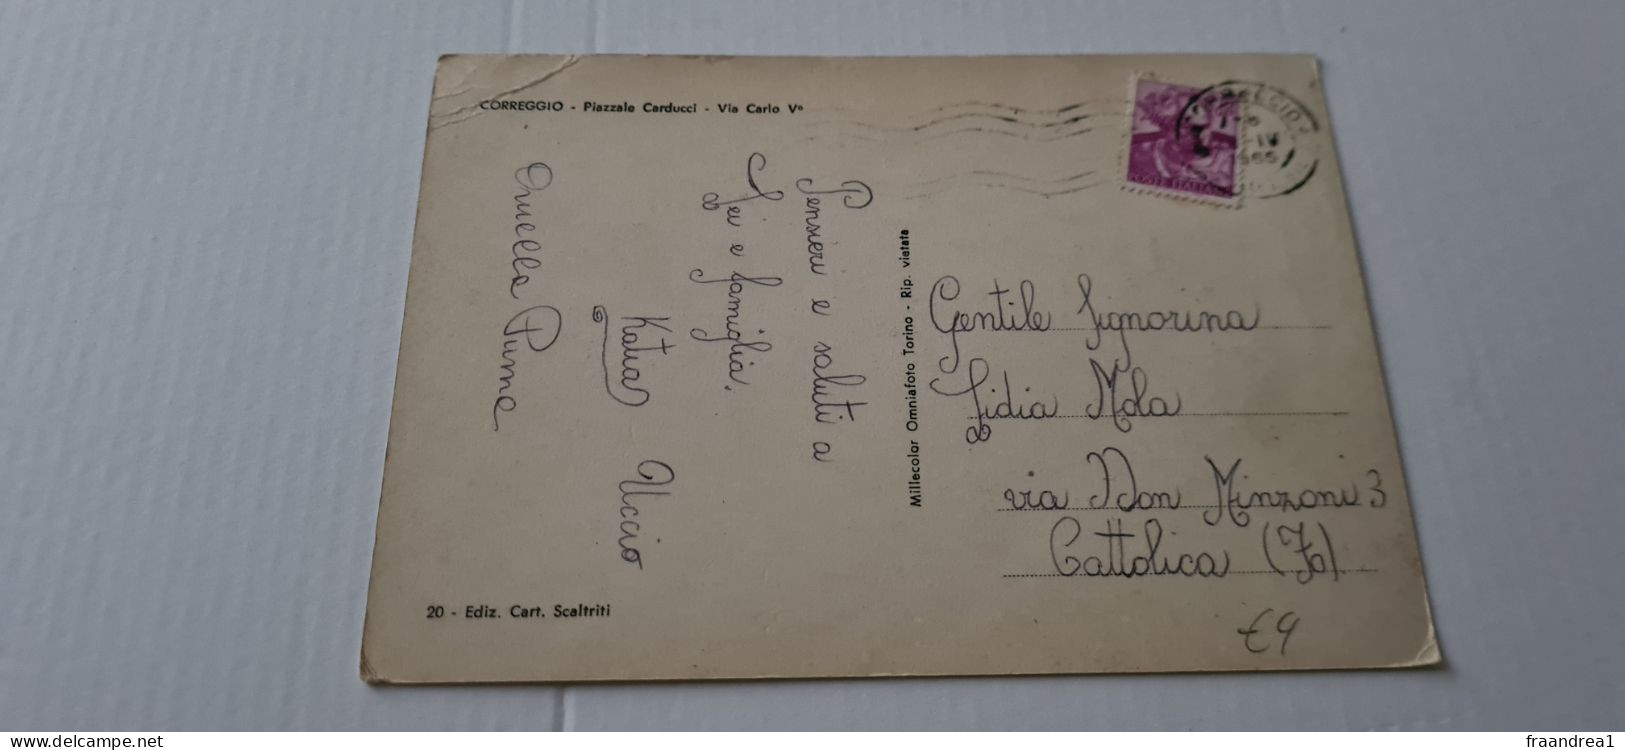 CORREGGIO - Piazzale Carducci - Via Carlo Vº
Pensieri e saluti a
Lei e famiglia.
Katia Uccio
Ornella
20 - Ediz. Cart. Scaltriti
Millecolor Omniafoto Torino - Rip. vietata
POSTE ITALIANE
Gentile Signorina
Lidia Mola
via Don Minzoni 3
Cattolica (Fo).
€4
www.delcampe.net
fraandrea1